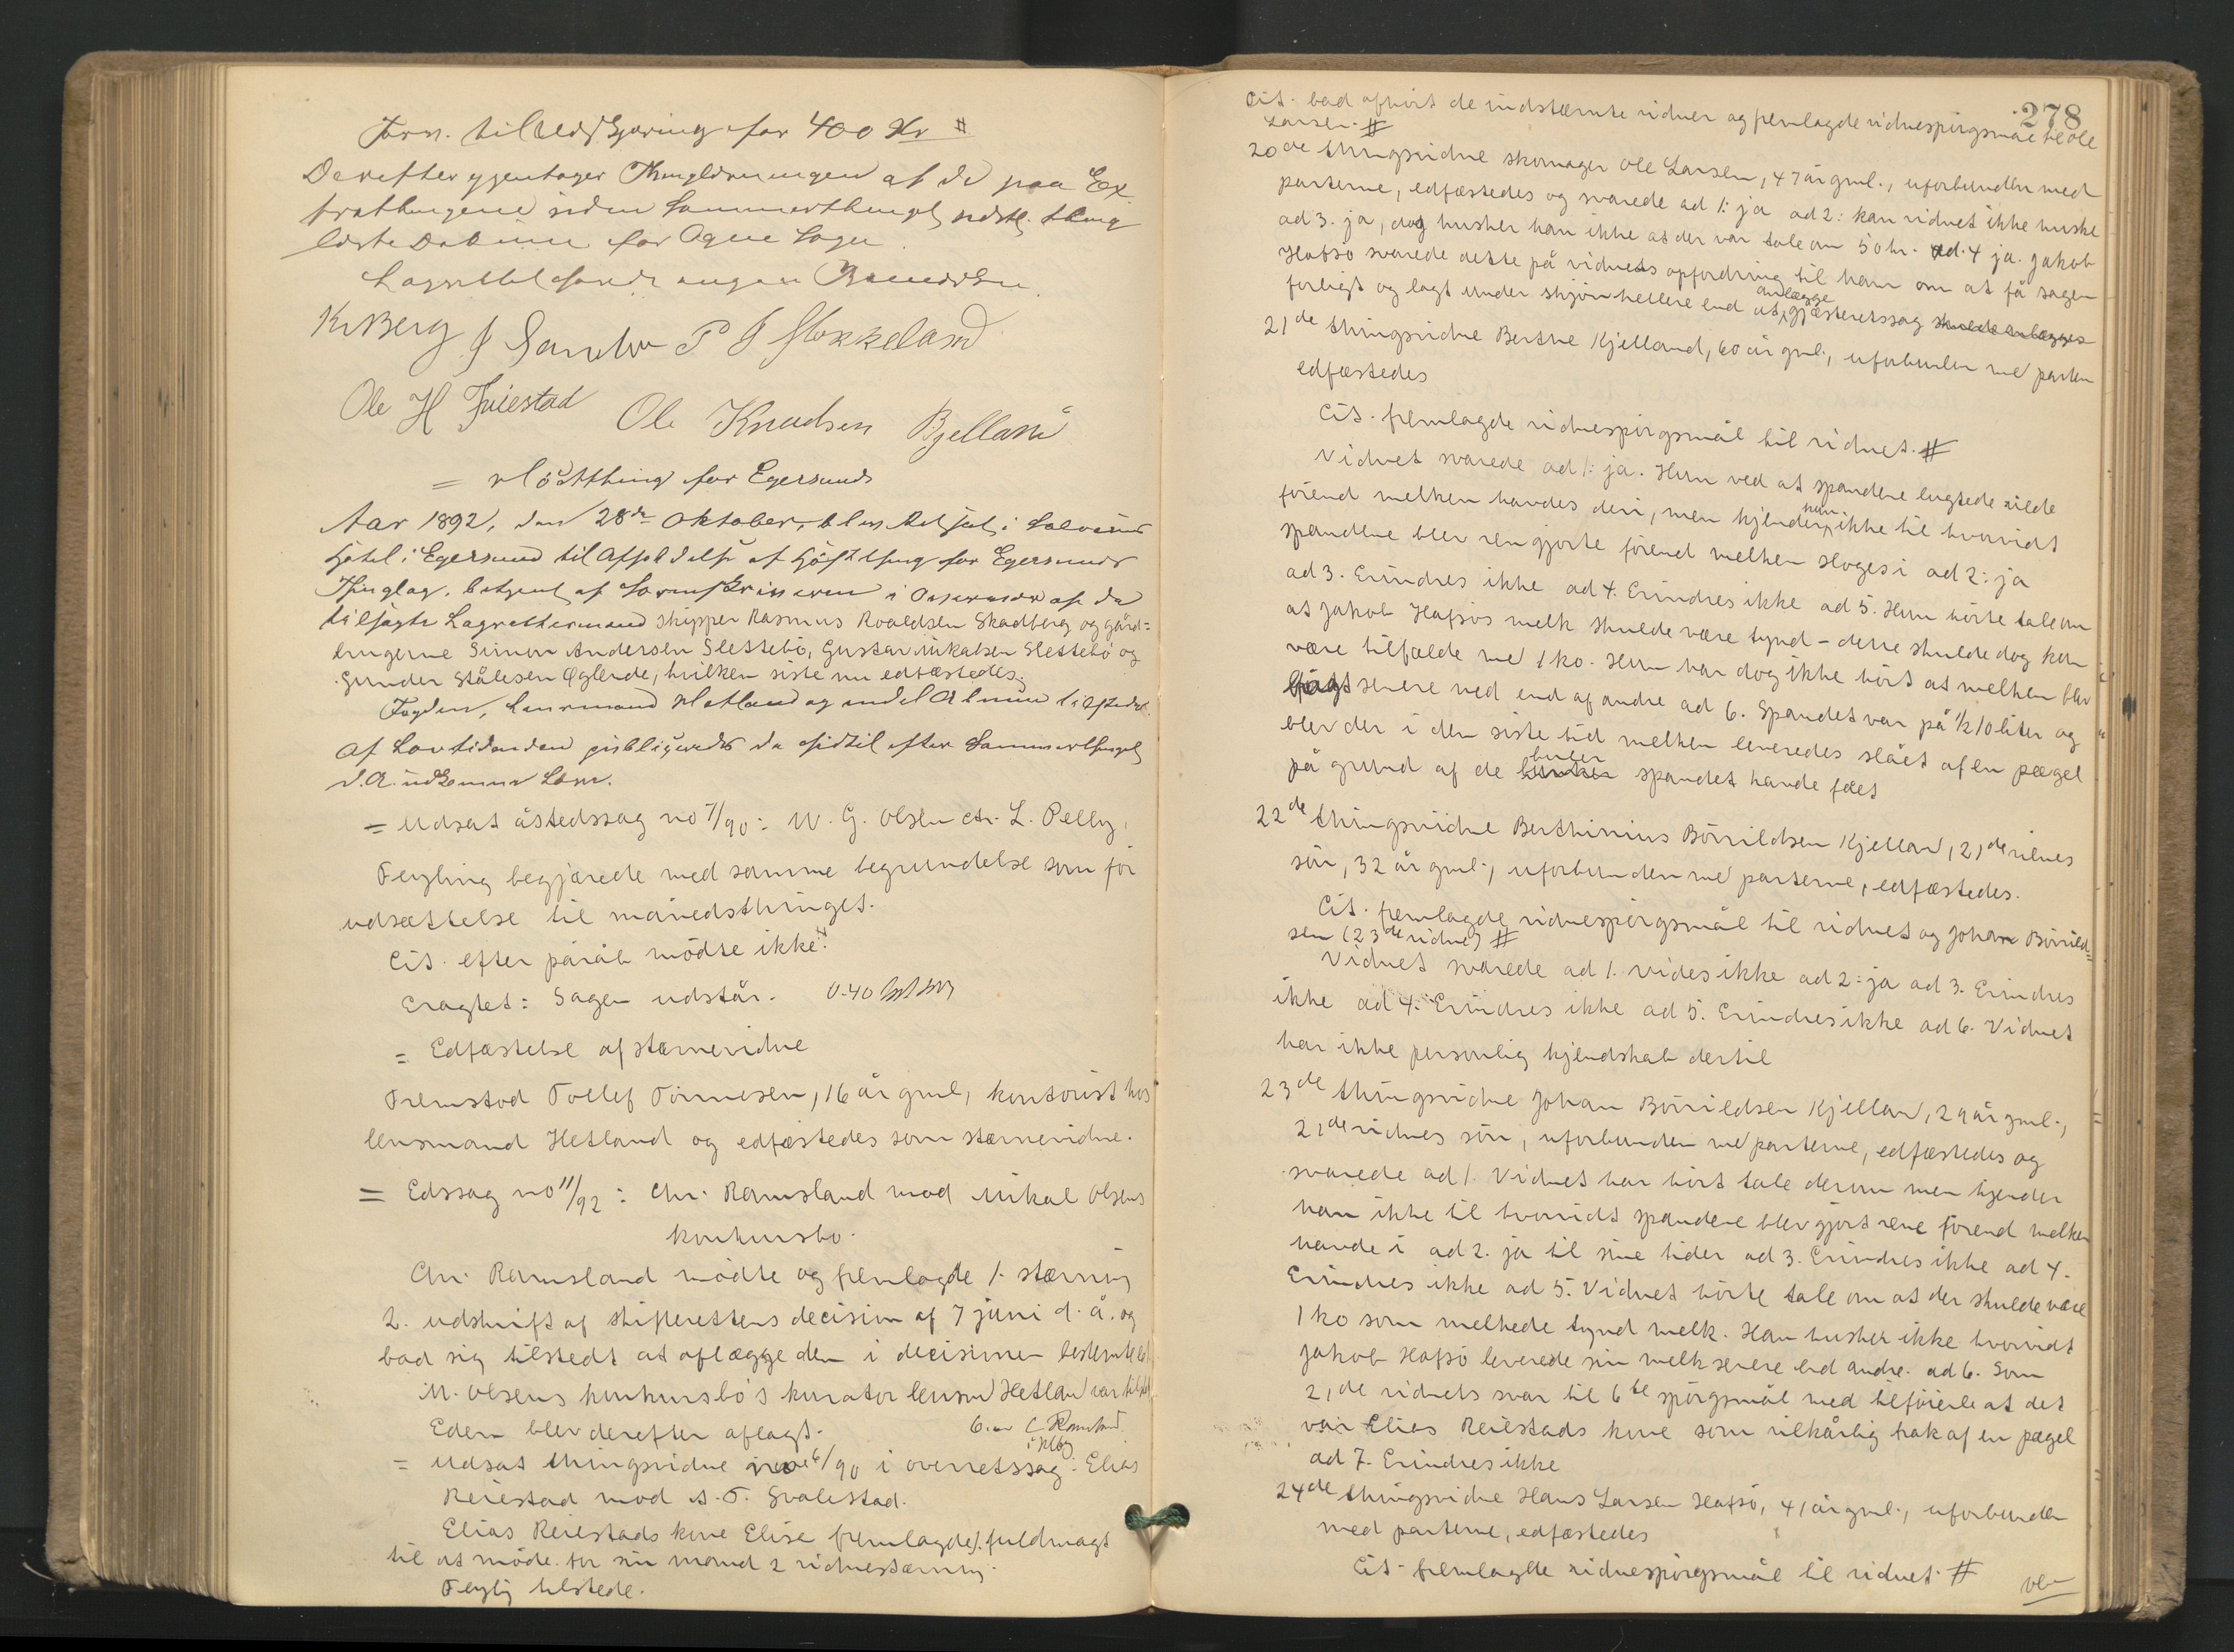 Forsv. til Udf Gjøring for 400 Kr #
Derefter gjentoges Thinglæsningen af de paa Ex-
trathingene siden Sommerthinget sidstl. thing
læste Dokum. for Ogne Sogn
Lagrettet
K Berg J Sandve P J Stokkeland
Ole H Fuiestad Ole Knudsen Bjelland
= Høstthing for Egersund
Aar 1892, den 28de Oktober, blev Ret sat i Salvesens
Hotel i Egersund til Afholdelse af Høstthing for Egersunds
Thinglag, betjent af Sorenskriveren i Overvær af de
tilsagte Lagrettemænd skipper Rasmus Roaldsen Skadberg og gård=
brugerne Simon Andersen Slettebö, Gustav Mikalsen Slettebö og
Gunder Stålesen Øglende, hvilken siste nu edfæstedes.
Fogden, Lensmand Hetland og endel Almue tilstede.
Af Lovtidenden publiceredes de hidtil efter Sommerthinget
d.A. udkomne Love.
= Udsat åstedssag no 7/90: W. G. Olsen ctr. L. Pelly,
Feyling begjærede med samme begrundelse som för
udsættelse til månedsthinget.
Cit. efter påråb mödte ikke.
Eragtet: Sagen udstår. 0.40
= Edfæstelse af stævnevidne
Fremstod Tollef Tönnesen, 16 år gml, kontorist hos
lensmand Hetland og edfæstedes som stævnevidne.
= Edssag no 11/92: Chr. Ramsland mod Mikal Olsens
konkursbo.
Chr. Ramsland mödte og fremlagde 1. stævning
2. udskrift af skifterettens decision af 7 juni d. å. og
bad sig tilstedt at aflægge den i decisionen bestemte ed
M. Olsens konkursbo's kurator lensm Hetland var tilstede
Eden blev derefter aflagt.
= Udsat thingsvidne no 6/90 i overretssag: Elias
Reiestad mod A. T. Svalestad.
Elias Reiestads kone Elise fremlagde 1. fuldmagt
til at möde for sin mand 2 vidnestævning.
Feylg tilstede.
278
Cit. bad afhört de indstævnte vidner og fremlagde vidnespörgsmål til Ole
Larsen. #
20de thingsvidne skomager Ole Larsen, 47 år gml., uforbunden med
parterne, edfæstedes og svarede ad 1: ja ad 2: kan vidnet ikke huske
ad 3. ja, dog husker han ikke at der var tale om 50 kr. ad. 4 ja. Jakob
Hafsö svarede dette på vidnets opfordring til ham om at få sagen
forligt og lagt under skjön hellere end at anlægge gjesteretssag skulde anlægges
21de thingsvidne Berthe Kjelland, 60 år gml., uforbunden med parten
edfæstedes
Cit. fremlagde vidnespörgsmål til vidnet. #
Vidnet svarede ad 1: ja. Hun ved at spandene lugtede ilde
förend melken havdes deri, men kjender hun ikke til hvorvidt
spandene blev rengjorte förend melken sloges i ad 2: ja
ad 3. Erindres ikke ad 4. Erindres ikke ad 5. Hun hörte tale om
at Jakob Hafsös melk skulde være tynd - dette skulde dog kun
være tilfælde med 1 ko. Hun har dog ikke hört at melken blev
senere ned end af andre ad 6. Spandet var på ½ 10 liter og
blev der i den siste tid melken leveredes slået af en pægel
på grund af de buler spandet havde fået
22de thingsvidne Berthinius Börrildsen Kjelland, 21de vidnes
sön, 32 år gml., uforbunden med parterne, edfæstedes.
Cit. fremlagde vidnespörgsmål til vidnet og Johan Börrild=
sen (23de vidne) #
Vidnet svarede ad 1. vides ikke ad 2: ja ad 3. Erindres
ikke ad 4. Erindres ikke ad 5. Erindres ikke ad 6. Vidnet
har ikke personlig kjendskab dertil
23de thingsvidne Johan Börrildsen Kjelland, 29 år gml.,
21de vidnes sön, uforbunden med parterne, edfæstedes og
svarede ad 1. Vidnet har hört tale derom men kjender
han ikke til hvorvidt spandene blev gjort rene förend melken
havde i ad 2. ja til sine tider ad 3. Erindres ikke ad 4.
Erindres ikke ad 5. Vidnet hörte tale om at der skulde være
1 ko som melkede tynd melk. Han husker ikke hvorvidt
Jakob Hafsö leverede sin melk senere end andre. ad 6. Som
21de vidnets svar til 6te spörgsmål med tilföiende at det
var Elias Reiestads kone som vilkårlig trak af en pægel
ad 7. Erindres ikke
24de thingsvidne Hans Larsen Hafsö, 41 år gml., uforbunden
med parterne, edfæstedes
Cit. fremlagde vidnespörgsmål til vidnet #